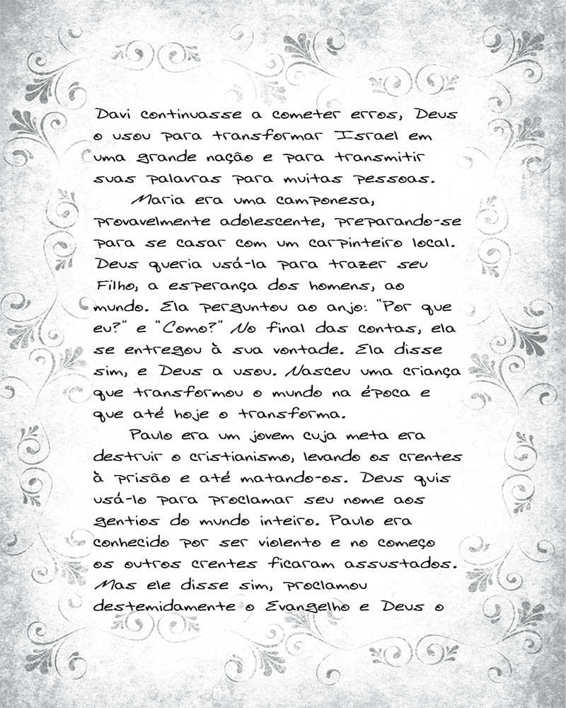 Davi continuasse a cometer erros, Deus
o usou para transformar Israel em
uma grande nação e para transmitir
suas palavras para muitas pessoas.
Maria era uma camponesa,
provavelmente adolescente, preparando-se
para se casar com um carpinteiro local.
Deus queria usá-la para trazer seu
Filho, a esperança dos homens, ao
mundo. Ela perguntou ao anjo: "Por que
eu?" e "Como?" No final das contas, ela
se entregou à sua vontade. Ela disse
sim, e Deus a usou. Nasceu uma criança
que transformou o mundo na época e
que até hoje o transforma.
Paulo era um jovem cuja meta era
destruir o cristianismo, levando os crentes
à prisão e até matando-os. Deus quis
usá-lo para proclamar seu nome aos
gentios do mundo inteiro. Paulo era
conhecido por ser violento e no começo
os outros crentes ficaram assustados.
Mas ele disse sim, proclamou
destemidamente o Evangelho e Deus o